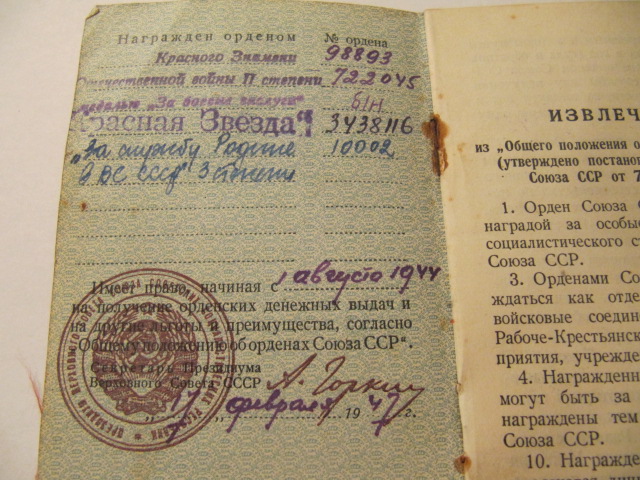 Награжден орденом № ордена
Красного Знамени 98893
Отечественной войны II степени 722045
медалью „За боевые заслуги" б/н
Красная Звезда" 3438116
„За службу Родине 10002
в ВС СССР" 3 степени
Имеет право, начиная с 1 августа 1944
на получение орденских денежных выдач и
на другие льготы и преимущества, согласно
„Общему положению об орденах Союза ССР".
Секретарь Президиума
Верховного Совета СССР А. Горкин
„17" февраля 1947 г.
ИЗВЛЕЧ
из „Общего положения о
(утверждено постанов
Союза ССР от 7
1. Орден Союза С
наградой за особые
социалистического ст
Союза ССР.
3. Орденами Сою
ждаться как отдел
войсковые соедин
Рабоче-Крестьянск
приятия, учрежде
4. Награжденн
могут быть за
награждены тем
Союза ССР.
10. Награжде